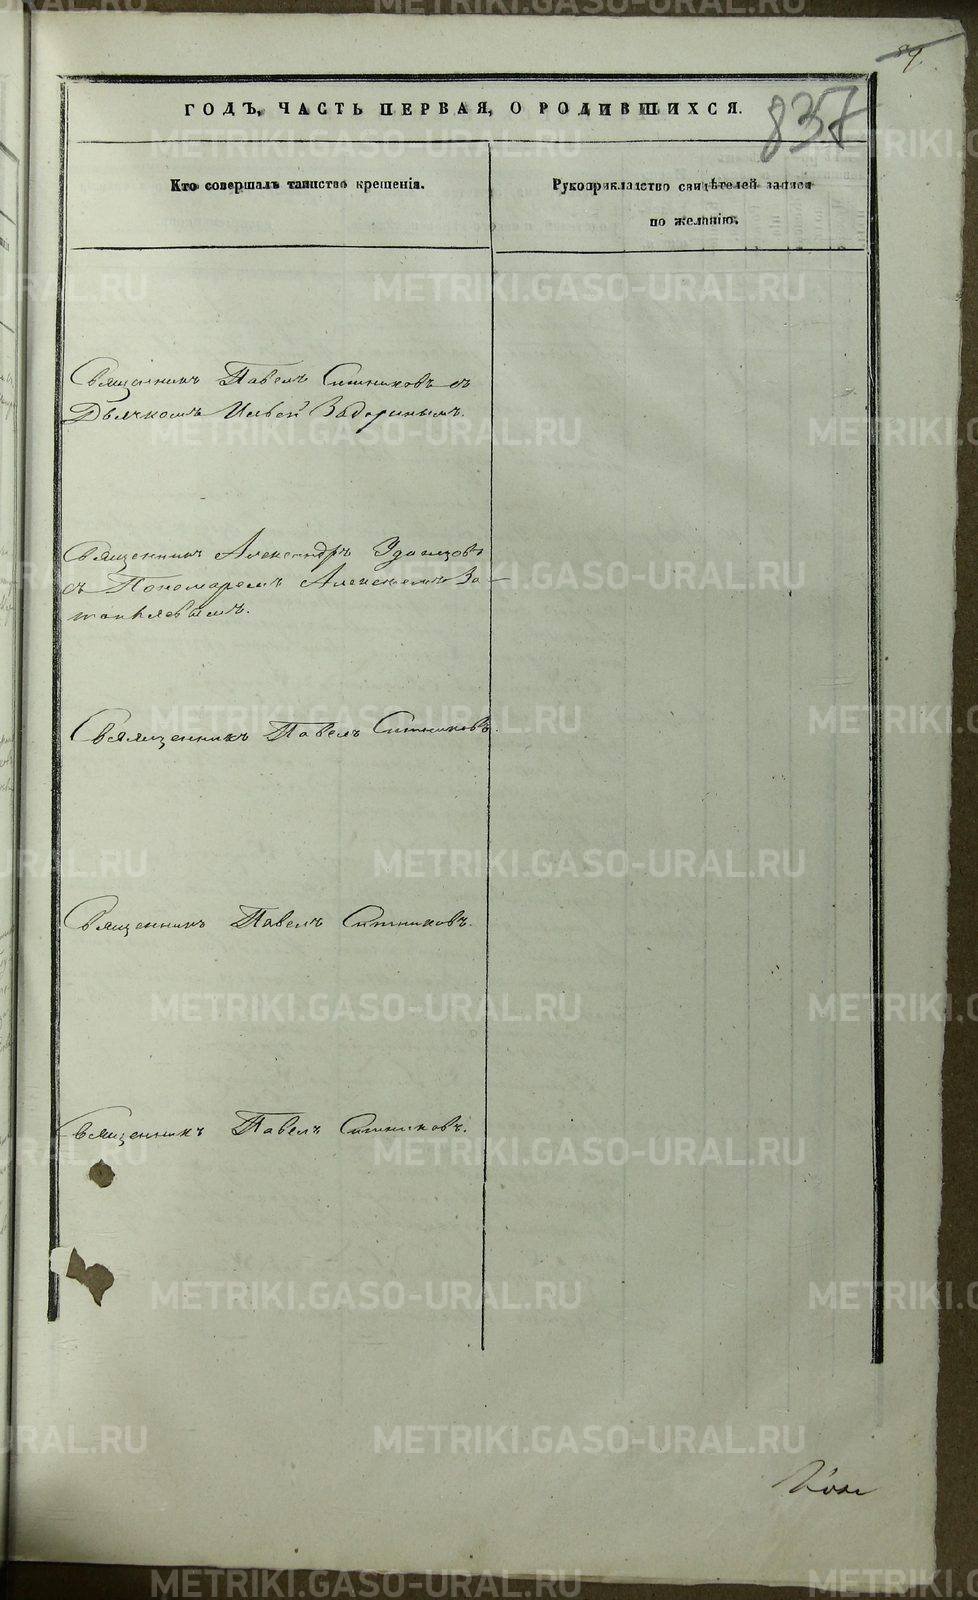 89.
837
ГОДЪ, ЧАСТЬ ПЕРВАЯ, О РОДИВШИХСЯ.
Кто совершалъ таинство крещенія.
Рукоприкладство свидѣтелей записи
по желанію.
Священникъ Павелъ Ситниковъ съ
Дьячкомъ Ильей Задоринымъ.
Священникъ Александръ Удинцовъ
съ Пономаремъ Алексѣемъ За-
топляевымъ.
Священникъ Павелъ Ситниковъ.
Священникъ Павелъ Ситниковъ.
Священникъ Павелъ Ситниковъ.
METRIKI.GASO-URAL.RU